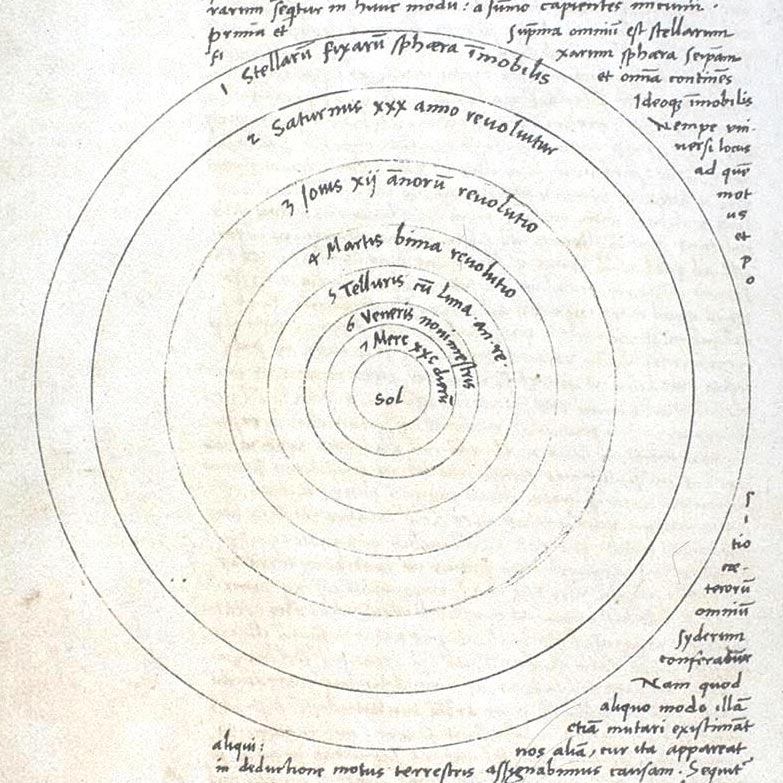 rarum seqͥtur in hunc modũ: a sũmo capientes initium.
prima et
fi
Sup̃ma omniũ est stellarum
xarum sphæra seipam
et omnia continẽs
Ideoqꝫ ĩmobilis
Nempe vni
uersi locus
ad quẽ
mot
us
et
p
o
1 Stellarũ fixarũ sphæra ĩmobilis
2 Saturnus xxx anno reuoluitur
3 Iouis xij ãnorũ reuolutio
4 Martis bima reuolutio
5 Telluris cũ Luna. an. re.
6 Veneris nonimestris
7 Merc xxc dierũ
Sol
s
i
tio
cæ-
terorũ
omniũ
syderum
conferatur
Nam quod
aliquo modo illã
etiã mutari existimãt
aliqui:
nos aliã, cur ita appareat
in deductione motus terrestris assignabimus causam. Sequit᷑